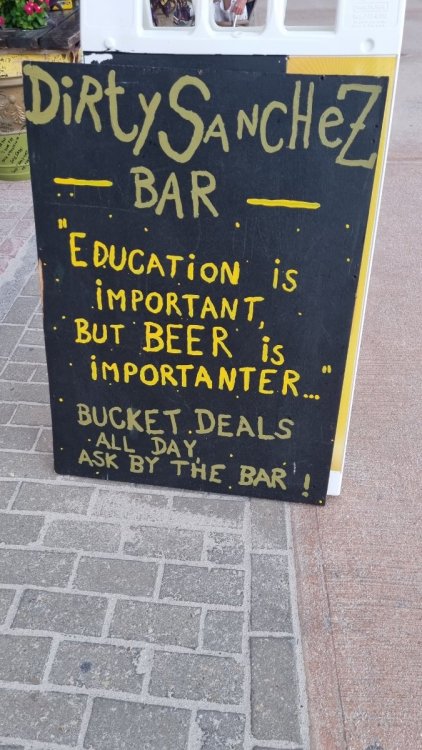 DiRtY SANCHeZ
BAR
"EDUCATiON iS
iMPORTANT,
BUT BEER iS
iMPORTANTER..."
BUCKET DEALS
ALL DAY,
ASK BY THE BAR!